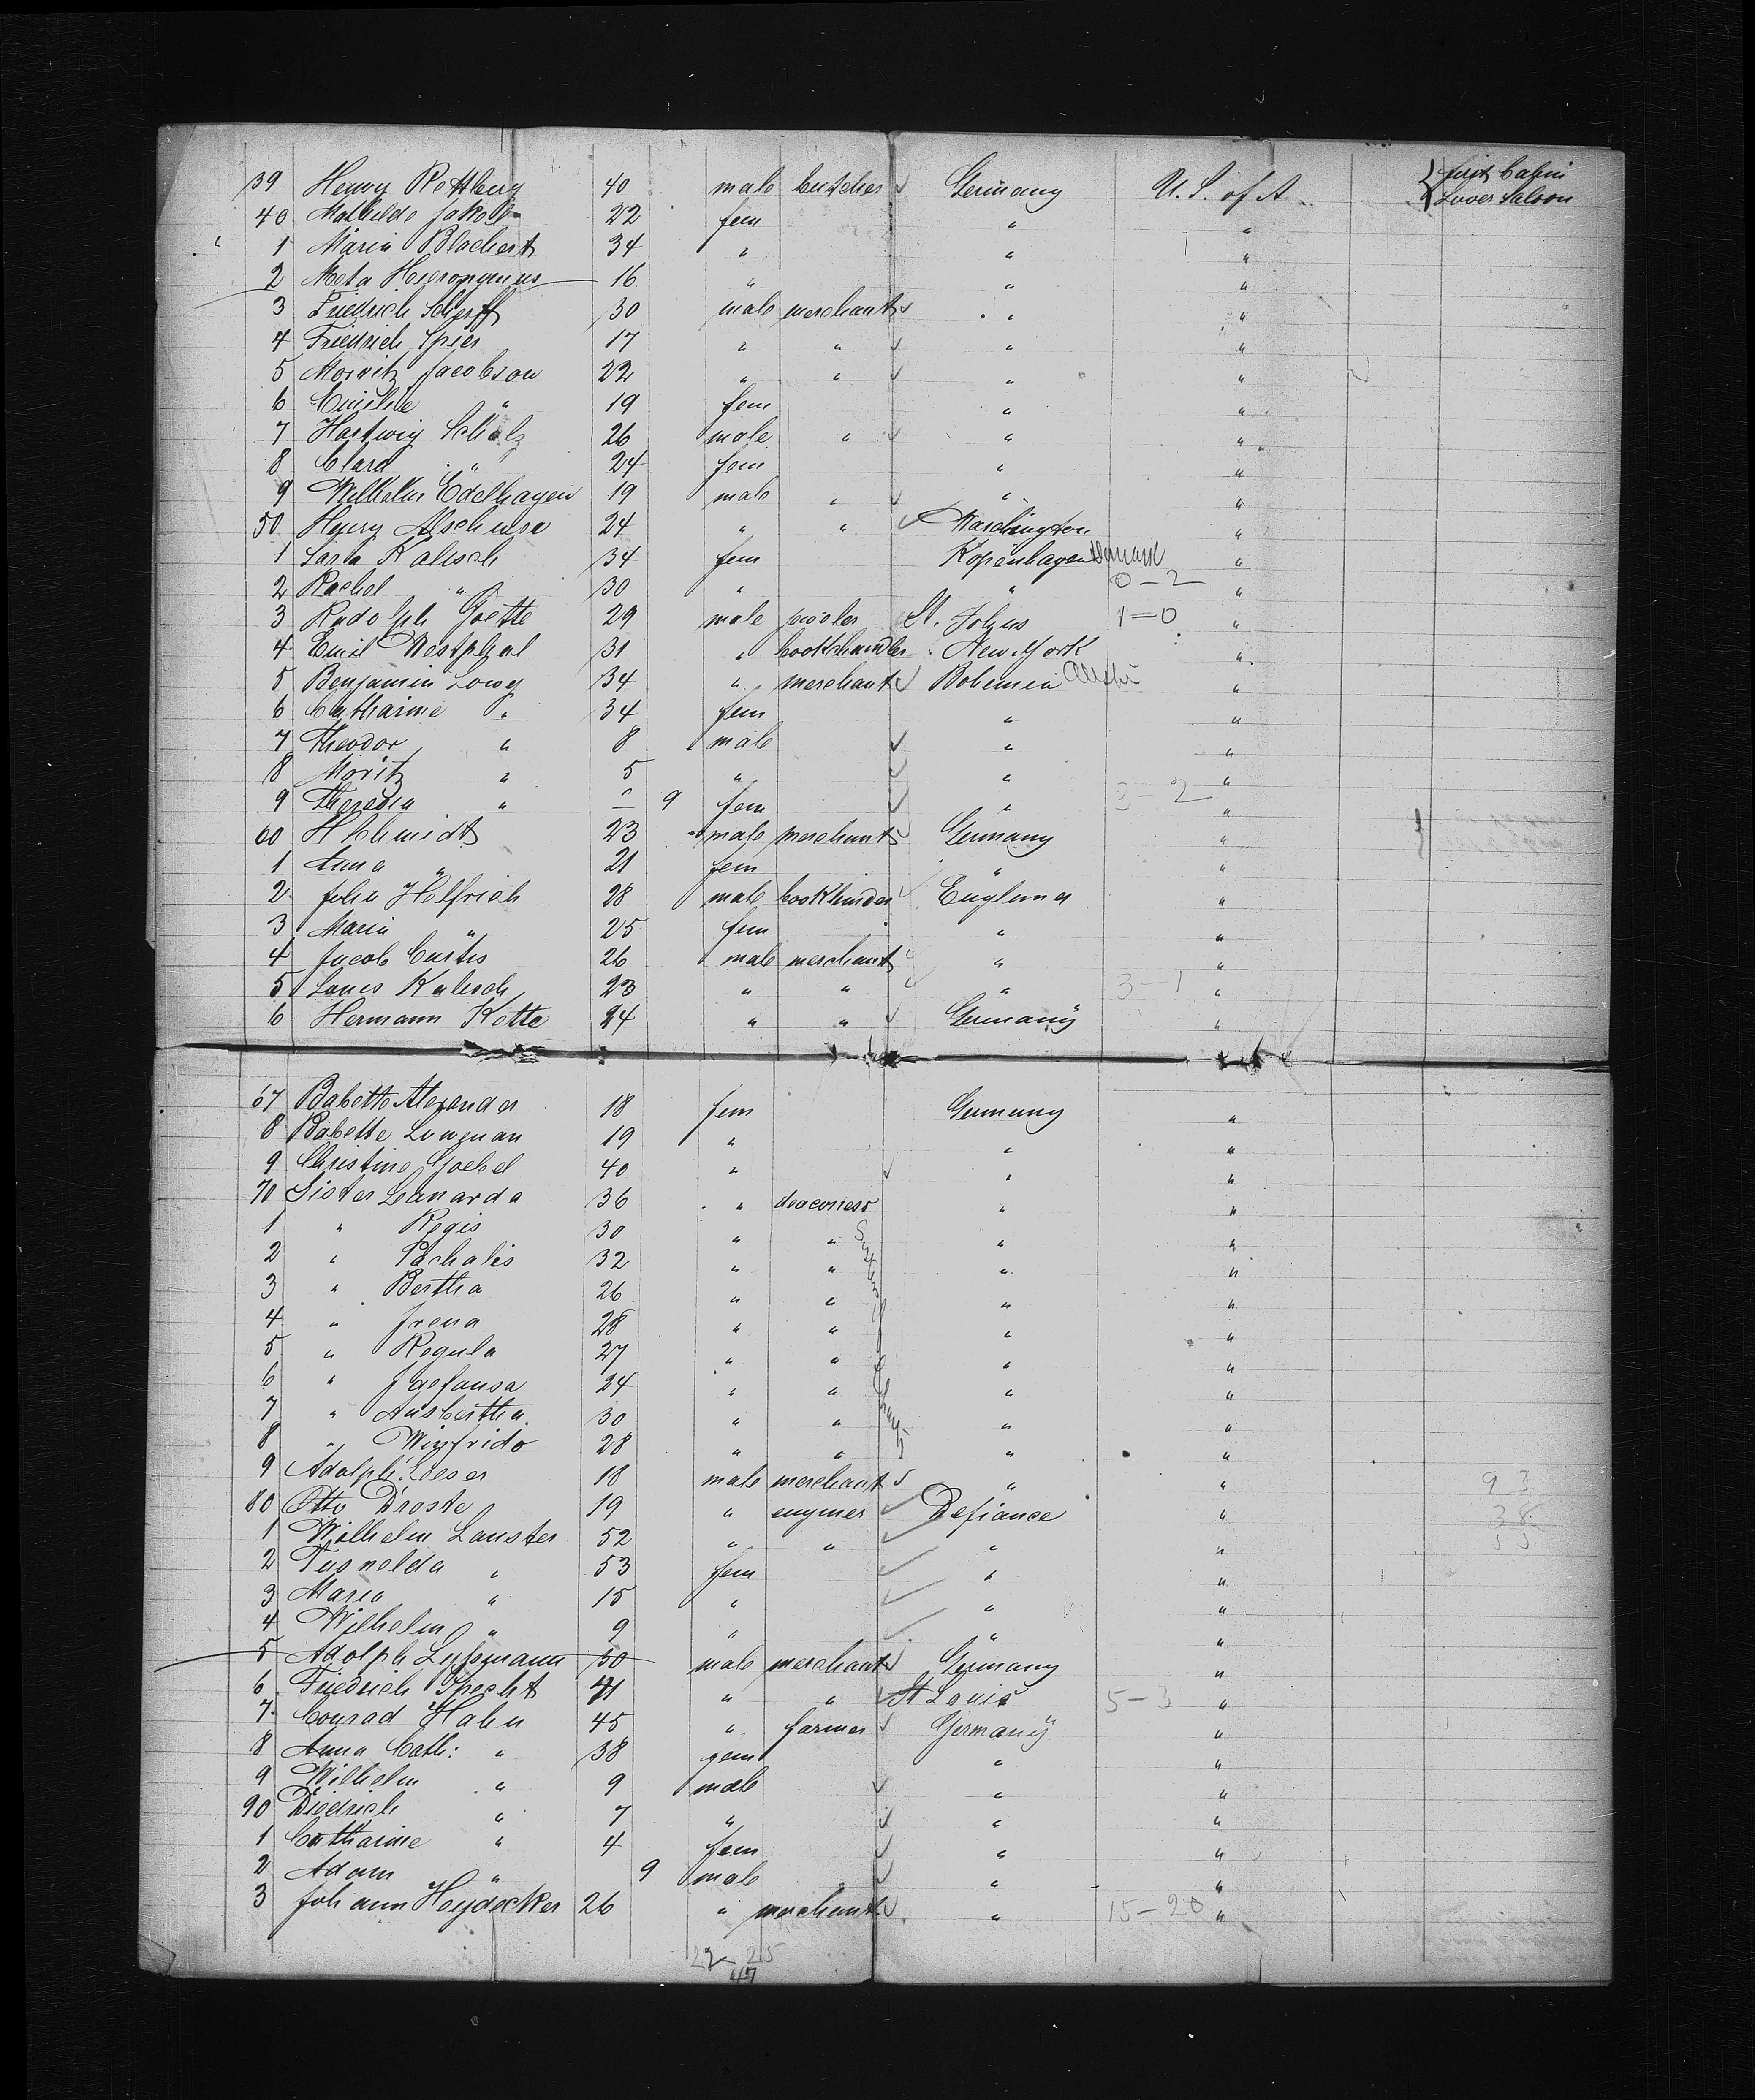 39 Henry Rettberg 40 male butcher Germany U. S. of A. first Cabin
40 Mathilde Jakob 22 fem " " Lower Saloon
1 Maria Blachert 34 " " "
2 Meta Hieronymus 16 " " "
3 Friedrich Scherff 30 male merchant " "
4 Friedrich Spier 17 " " " "
5 Moritz Jacobson 22 " " " "
6 Emilie " 19 fem " "
7 Hartwig Scholz 26 male " " "
8 Clara " 24 fem " "
9 Wilhelm Edelhagen 19 male " " "
50 Henry 24 " " Waschington "
1 Sara Kalisch 34 fem Kopenhagen Denmark "
2 Rachel " 30 " " 0-2 "
3 Rudolph Goette 29 male St. Johns 1=0 "
4 Emil Westphal 31 " bookhandler New-York "
5 Benjamin Lowy 34 " merchant Bohemia "
6 Catharine " 34 fem " "
7 Theodor " 8 male " "
8 Moritz " 5 " " "
9 Theresia " 9 fem " 3-2 "
60 H Schmidt 23 male merchant Germany "
1 Anna " 21 fem " "
2 John Helfrich 28 male bookbinder England "
3 Maria " 25 fem " "
4 Jacob Curtis 26 male merchant " "
5 Louis Kalisch 23 " " " 3-1 "
6 Hermann Kotte 24 " " Germany "
67 Babette Alexander 18 fem Germany "
8 Babette 19 " " "
9 Christine Goebel 40 " " "
70 Sister Leanarda 36 " deaconess " "
1 " Regis 30 " " " "
2 " Pachalis 32 " " " "
3 " Bertha 26 " " " "
4 " Irena 28 " " " "
5 " Regula 27 " " " "
6 " 24 " " " "
7 " Ausbertha 30 " " " "
8 " Winfrida 28 " " " "
9 Adolph Loeser 18 male merchant " " 93
80 Otto Droste 19 " enginer Defiance " 38
1 Wilhelm Lanster 52 " " " " 55
2 Tusnelda " 53 fem " "
3 Maria " 15 " " "
4 Wilhelm " 9 " " "
5 Adolph 30 male merchant Germany "
6 Friedrich Specht 41 " " St Louis 5-3 "
7 Conrad Hahn 45 " farmer Germany "
8 Anna Cath: " 38 fem " "
9 Wilhelm " 9 male " "
90 Diedrich " 7 " " "
1 Catharine " 4 fem " "
2 Adam " 9 male " "
3 Johann Heydecker 26 " merchant " 15-20 "
22-25
47